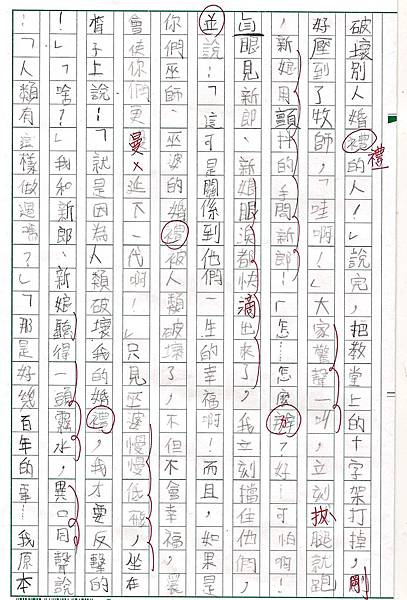 破壞別人婚禮的人！」說完，把教堂上的十字架打掉，剛
禮
好座到了牧師，「哇啊！」大家驚聲一叫，立刻拔腿就跑
，新娘用顫抖的手問新郎！「怎…怎麼辦？好可怕啊！
」眼見新郎、新娘眼淚都快滴出來了，我立刻擋住他們，
並說！「這可是關係到他們一生的幸福啊！而且，如果是
你們巫師、巫婆的婚禮被人類破壞了，不但不會幸福，還是
會使你們更曼延下一代啊！」只見巫婆慢慢低，坐在
椅子上說！「就是因為人類破壞我的婚禮，我才要反擊的
！」「啥？」我和新郎、新娘聽得一頭霧水，異口同聲說
！「人類有這樣做過嗎？」「那是好幾百年的事！我原本